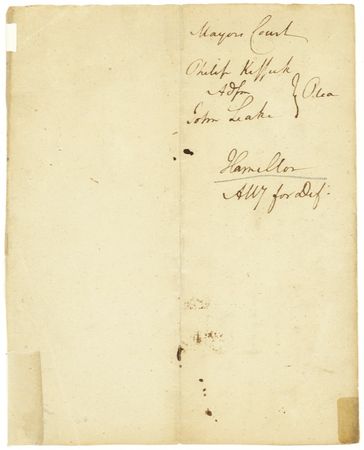 Mayors Court
Philip
Adsm } Plea
John Leake
Hamilton
Atty for Def.